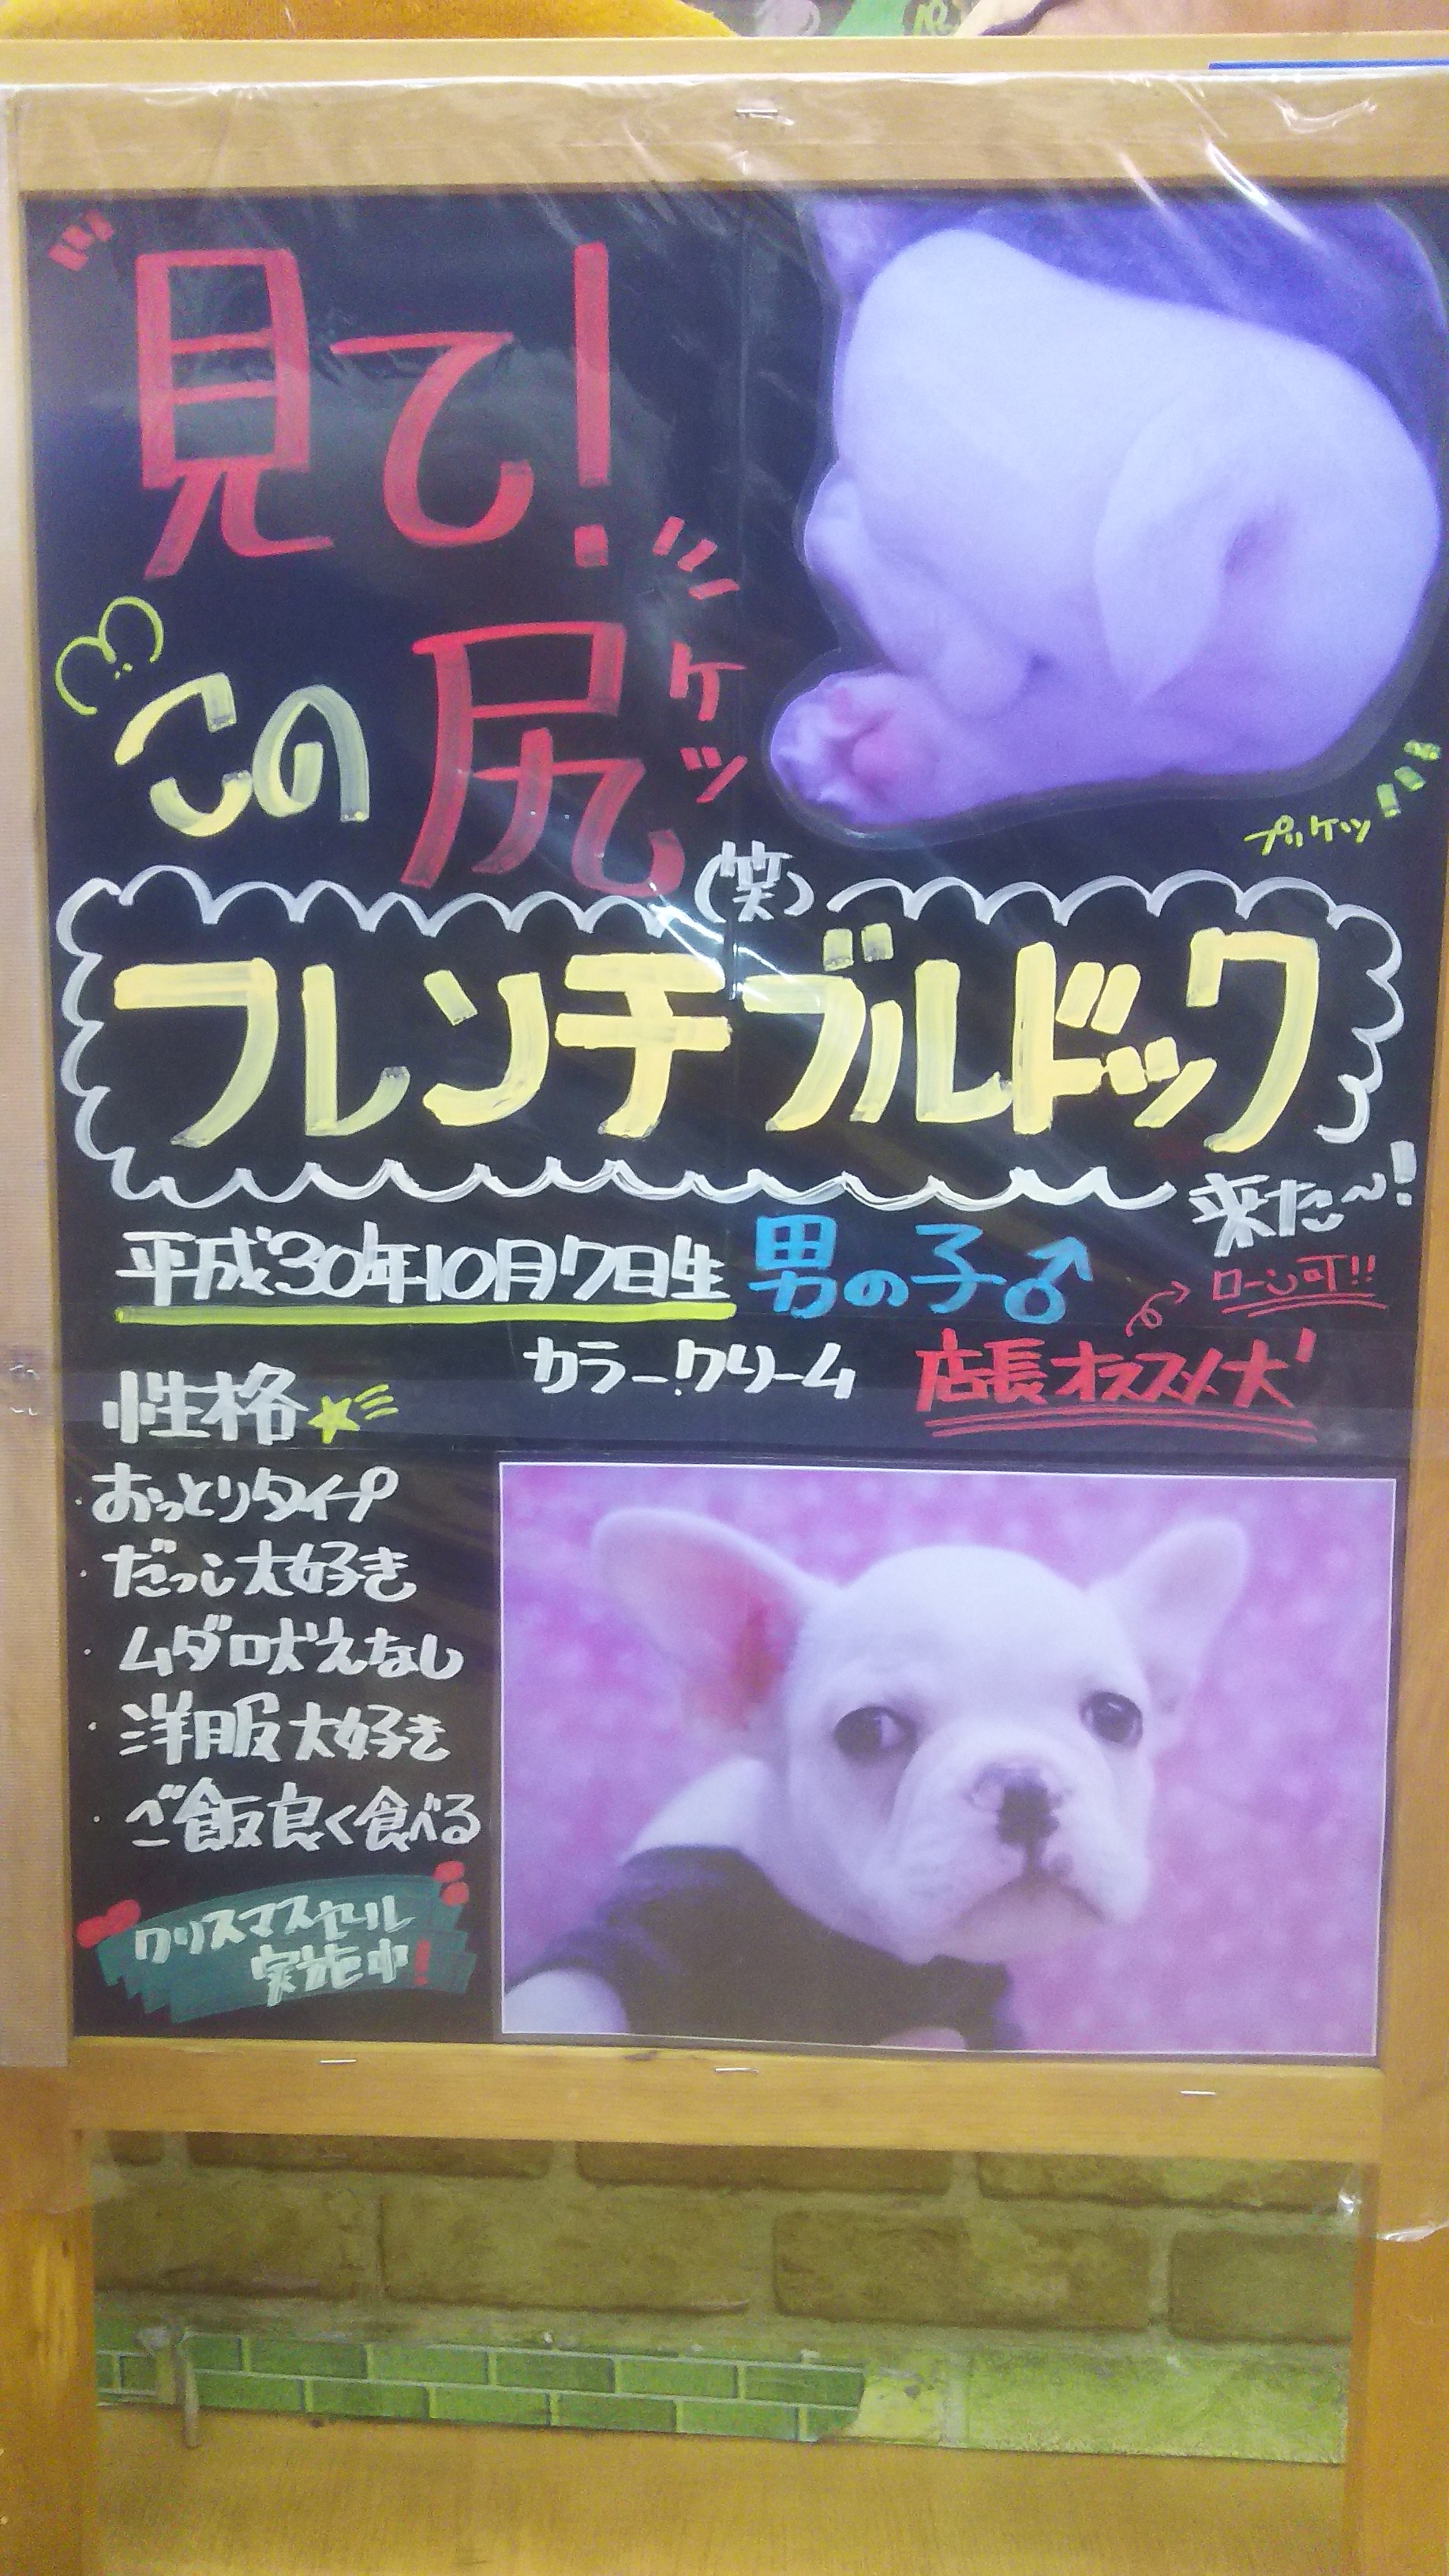 見て!
この尻
ケツ
プリケツ
(笑)
フレンチブルドック
来た～!
平成30年10月7日生 男の子♂
ローン可!!
カラー:クリーム
店長オススメ犬!
性格
・おっとりタイプ
・だっこ大好き
・ムダ吠えなし
・洋服大好き
・ご飯良く食べる
クリスマスセール
実施中!